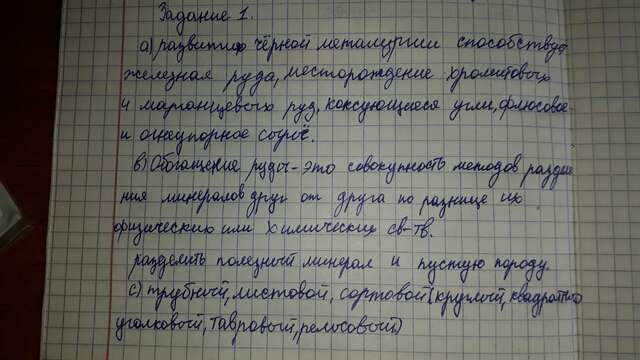 Задание 1.
а) развитию чёрной металургии способствует
железная руда, месторождение хромитовых
и марганцевых руд, коксующиеся угли, флюсовое
и огнеупорное сырьё.
в) Обогащение руды - это совокупность методов разделе
ния минералов друг от друга по разнице их
физических или химических св-тв.
разделить полезный минерал и пустую породу.
с) трубный, листовой, сортовой (круглый, квадратный
уголковый, тавровый, рельсовый)